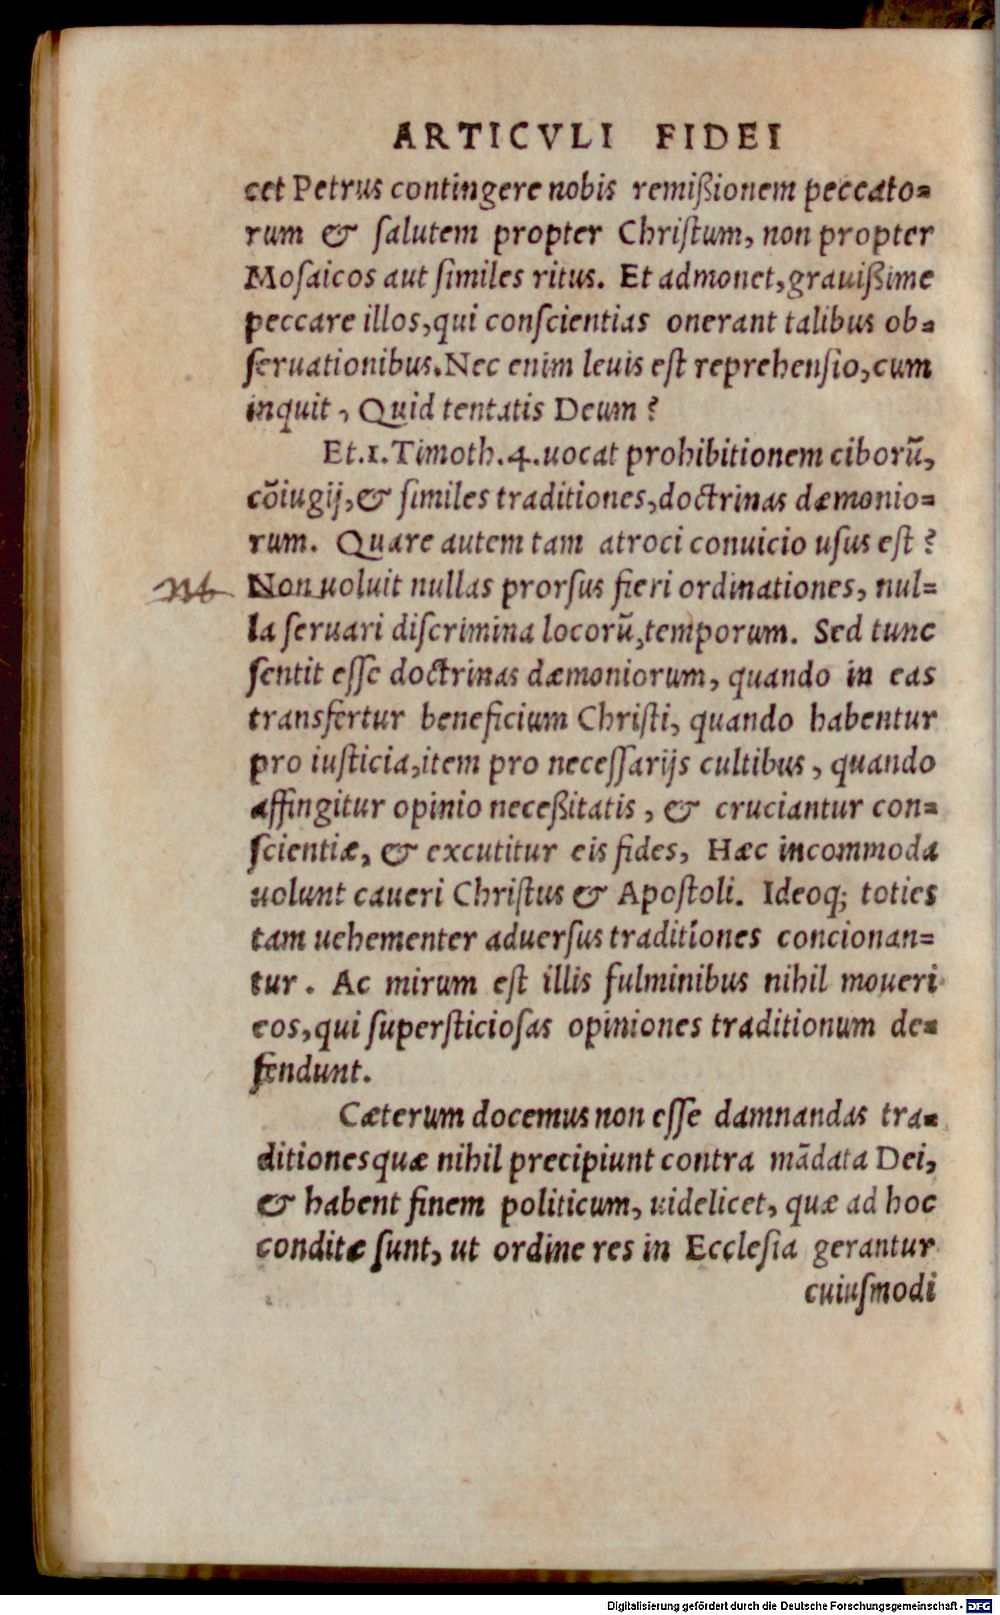 ARTICVLI FIDEI
cet Petrus contingere nobis remißionem peccato=
rum & ſalutem propter Chriſtum, non propter
Moſaicos aut ſimiles ritus. Et admonet, grauißime
peccare illos, qui conſcientias onerant talibus ob=
ſeruationibus. Nec enim leuis eſt reprehenſio, cum
inquit, Quid tentatis Deum?
Et. 1. Timoth. 4. uocat prohibitionem ciborũ,
cõiugij, & ſimiles traditiones, doctrinas dæmonio=
rum. Quare autem tam atroci conuicio uſus eſt?
Nb Non uoluit nullas prorſus fieri ordinationes, nul=
la ſeruari diſcrimina locorũ, temporum. Sed tunc
ſentit eſſe doctrinas dæmoniorum, quando in eas
transfertur beneficium Chriſti, quando habentur
pro iuſticia, item pro neceſſarijs cultibus, quando
affingitur opinio neceßitatis, & cruciantur con=
ſcientiæ, & excutitur eis fides, Hæc incommoda
uolunt caueri Chriſtus & Apoſtoli. Ideoq; toties
tam uehementer aduerſus traditiones concionan=
tur. Ac mirum eſt illis fulminibus nihil moueri
eos, qui ſuperſticioſas opiniones traditionum de=
fendunt.
Cæterum docemus non eſſe damnandas tra=
ditiones quæ nihil precipiunt contra mãdata Dei,
& habent finem politicum, uidelicet, quæ ad hoc
conditæ ſunt, ut ordine res in Eccleſia gerantur
cuiuſmodi
Digitalisierung gefördert durch die Deutsche Forschungsgemeinschaft - DFG